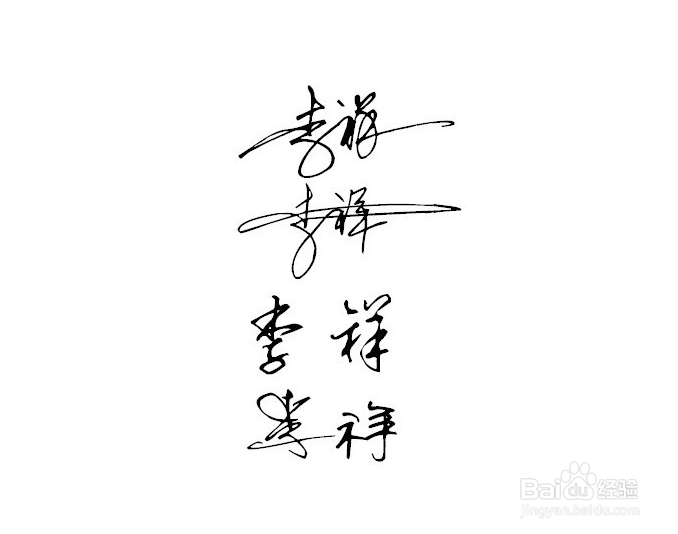 李祥
李祥
李祥
李祥
Baidu经验
jingyan.baidu.com